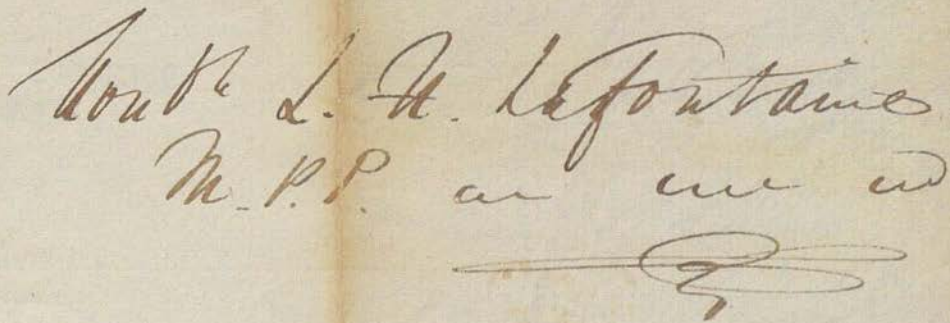 Honble L. H. LaFontaine
M.P.P.